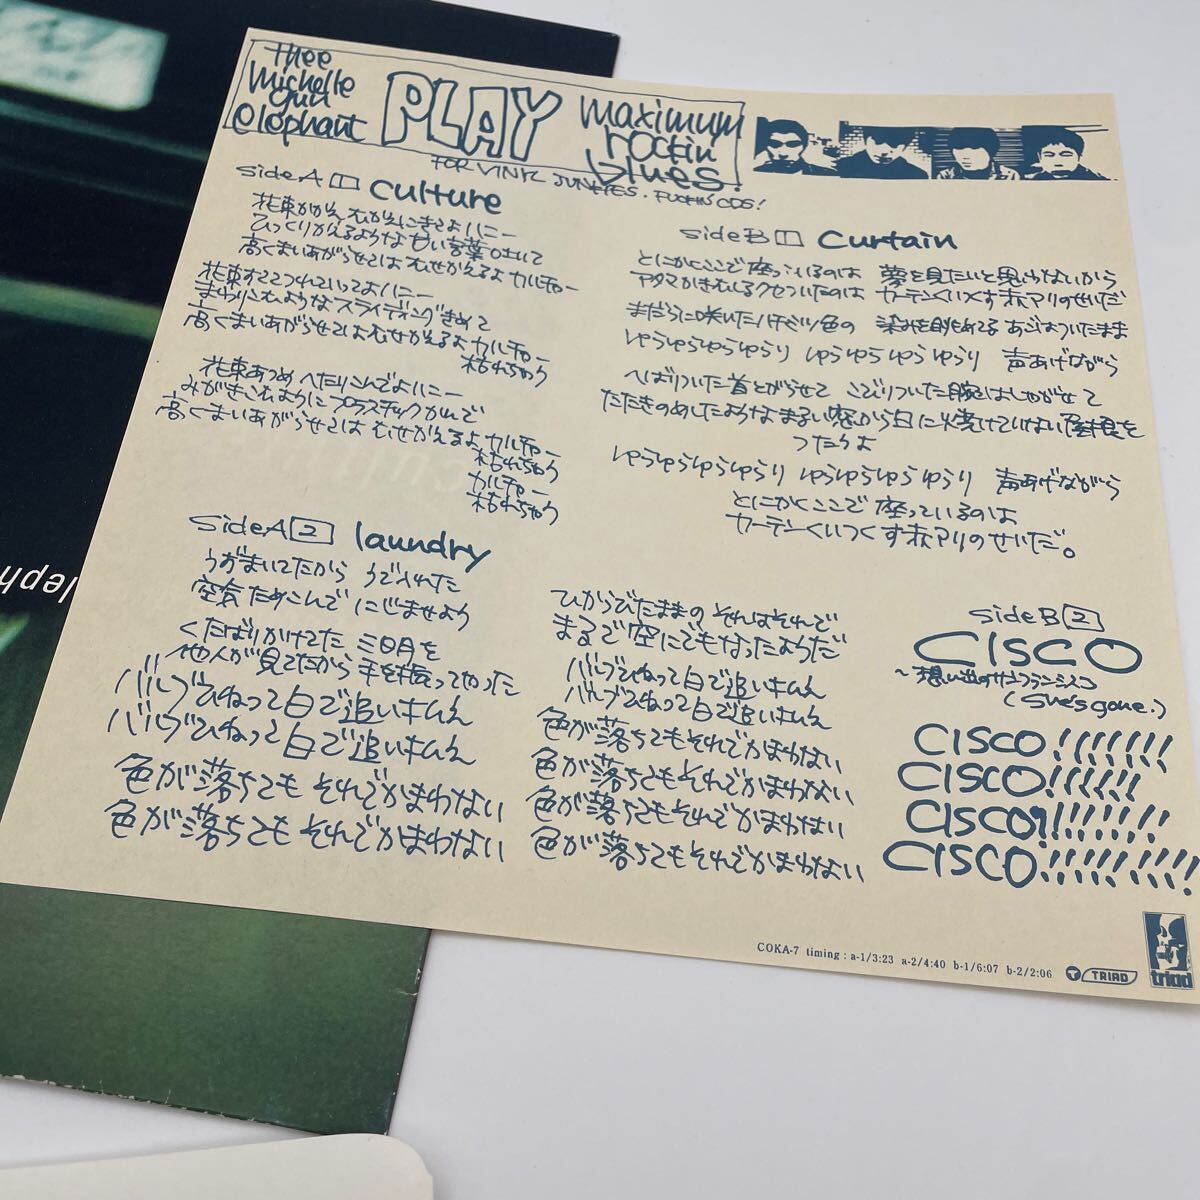 thee
michelle
gun
elephant
PLAY
maximum
rockin
blues!
FOR VINYL JUNKIES. FUCKIN CDS!
Side A 1 culture
花束かかえ むかえにきてよハニー
ひっくりかえるような甘い言葉吐いて
高くまいあがらせてはむせかえるよ カルチャー
花束すててつれていってよハニー
まわりこむようなスライディングきめて
高くまいあがらせてはむせかえるよ カルチャー
枯れちゃう
花束あつめ へたりこんでよハニー
みがきこむようにプラスチックかんで
高くまいあがらせてはむせかえるよ カルチャー
枯れちゃう
カルチャー
枯れちゃう
Side A 2 laundry
うずまいてたから うで入れた
空気ためこんで にじませよう
くたばりかけてた 三日月を
他人が見てたから 手を振ってやった
バルブひねって白で追い
バルブひねって白で追い
色が落ちても それでかまわない
色が落ちても それでかまわない
ひからびたままの それはそれで
まるで空にでもなったようだ
バルブひねって白で追い
バルブひねって白で追い
色が落ちてもそれでかまわない
色が落ちてもそれでかまわない
色が落ちてもそれでかまわない
色が落ちてもそれでかまわない
Side B 1 curtain
とにかくここで座っているのは 夢を見たいと思わないから
アタマかきむしるクセついたのは カーテンくいつくす赤アリのせいだ
まだらに咲いたハチミツ色の 染みを眺めてる あごはついたまま
ゆらゆらゆらゆらり ゆらゆらゆらゆらり 声あげながら
へばりついた首とがらせて こびりついた腕はしゃがせて
たたきのめしたような まるい窓から 日に焼けていない屋根を
つたうよ
ゆらゆらゆらゆらり ゆらゆらゆらゆらり 声あげながら
とにかくここで 座っているのは
カーテンくいつくす赤アリのせいだ。
Side B 2
CISCO
～想い出のサンフランシスコ
(She's gone.)
CISCO!!!!!!!
CISCO!!!!!!
CISCO!!!!!!!!
CISCO!!!!!!!!!
COKA-7 timing : a-1/3:23 a-2/4:40 b-1/6:07 b-2/2:06
TRIAD
triad
leph